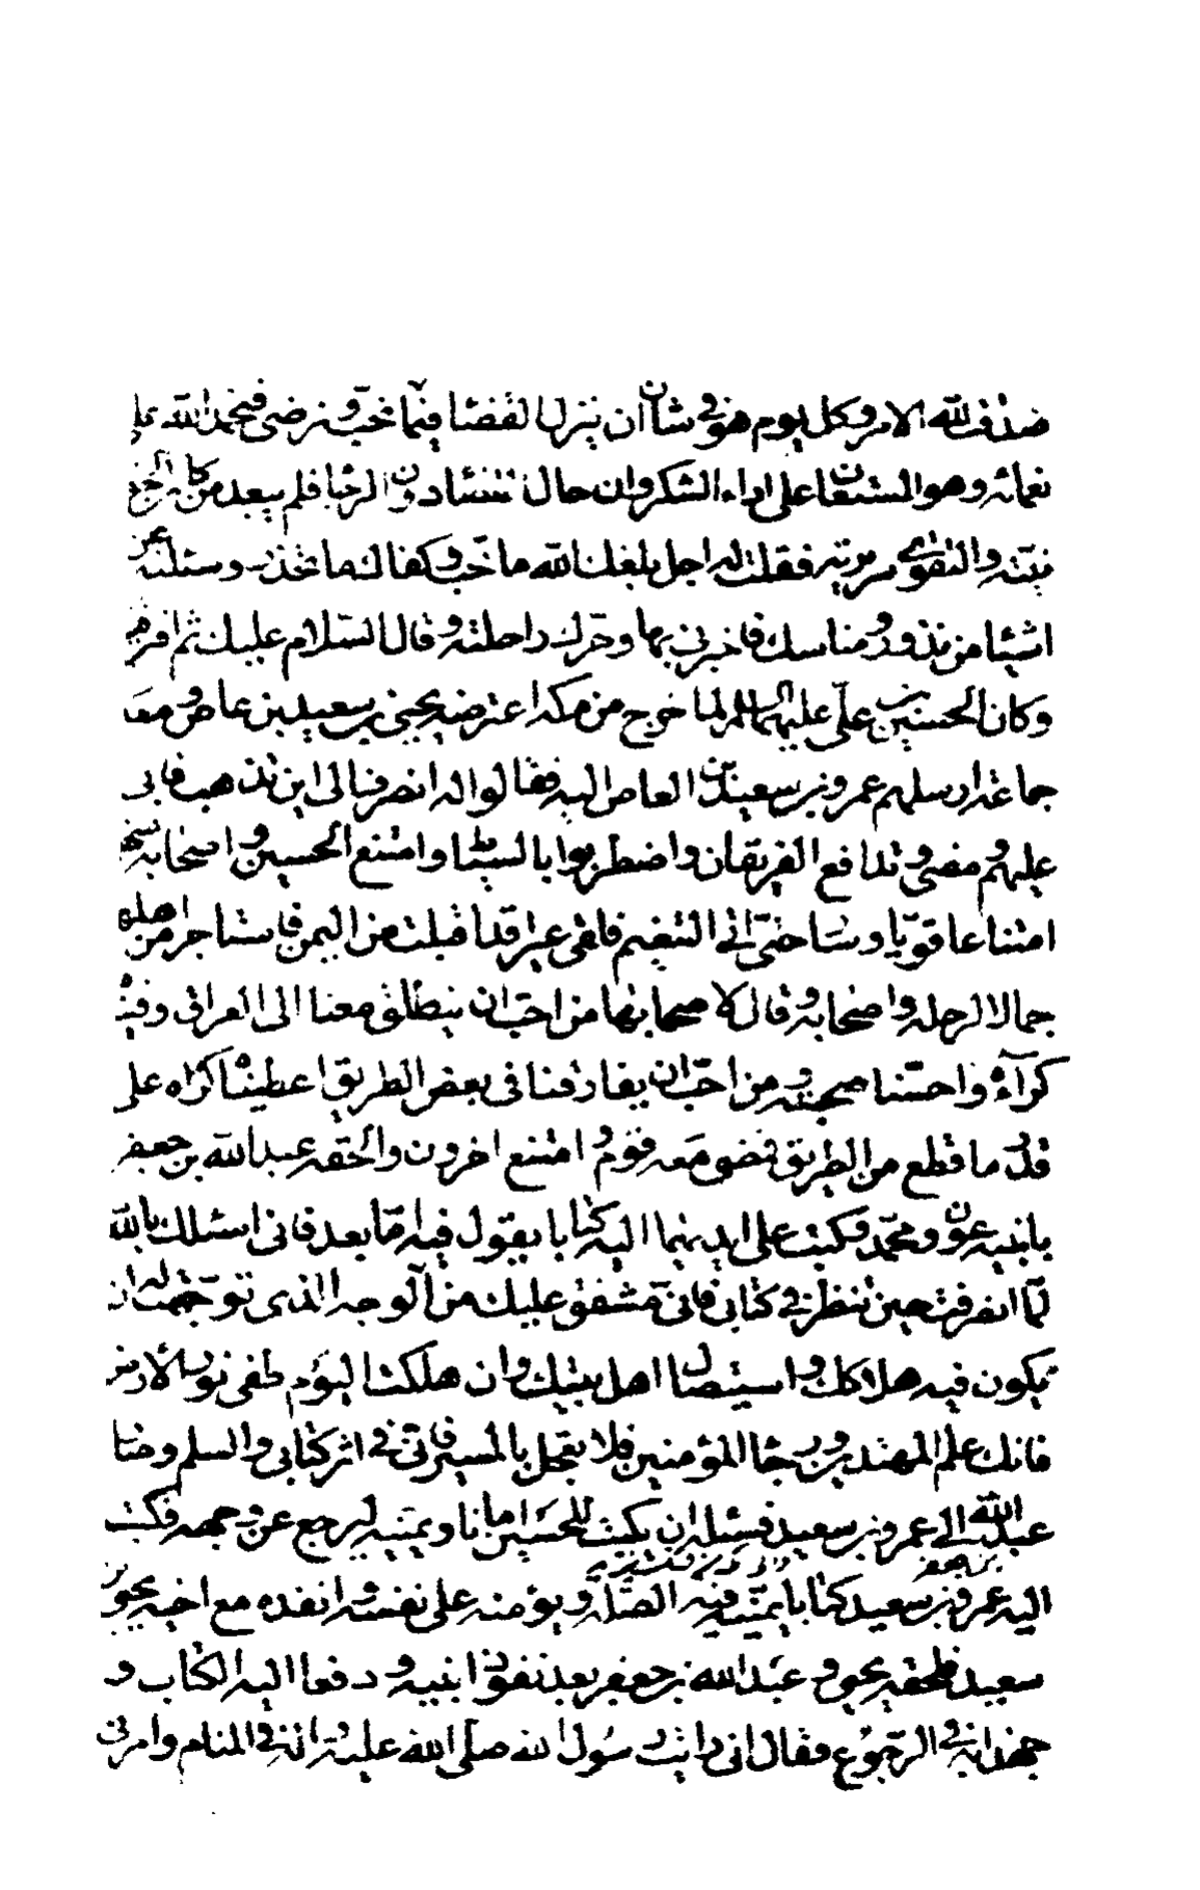 صدقت لله الامر وكل يوم هو في شان ان ينزل القضا فيما نحب ونرضى فنحمد الله على
نعمائه وهو المستعان على اداء الشكر وان حال القضا دون الرجا فلم يبعد من كان الحق
نيته والتقوى سريرته فقلت له اجل بلغك الله ما تحب وكفاك ما تحذر وسئلته عن
اشيئا من نذور ومناسك فاخبرني بها وحرك راحلته وقال السلام عليك ثم افترقنا
وكان الحسين بن علي عليهما السلم لما خرج من مكه اعترضه يحيى بن سعيد بن عاص ومعه
جماعة ارسلهم عمرو بن سعيد بن العاص اليه فقالوا له انصرف الى اين تذهب فابى
عليهم ومضى وتدافع الفريقان واضطربوا بالسياط وامتنع الحسين واصحابه منهم
امتناعا قويا وسار حتى اتى التنعيم فلقى عيرا قد اقبلت من اليمن فاستاجر من اهلها
جمالا لرحله واصحابه وقال لاصحابها من احب ان ينطلق معنا الى العراق وفينا
كرآءه واحسنا صحبته ومن احب ان يفارقنا فى بعض الطريق اعطيناه كراه على
قدر ما قطع من الطريق فمضى معه قوم وامتنع اخرون والحقه عبد الله بن جعفر
بابنيه عون ومحمد وكتب على ايديهما اليه كتابا يقول فيه اما بعد فانى اسئلك بالله
لما انصرفت حين تنظر في كتابى فانى مشفق عليك من الوجه الذى توجهت له ان
يكون فيه هلاكك واستيصال اهل بيتك وان هلكت اليوم طفى نور الارض
فانك علم المهتدين ورجا المؤمنين فلا تعجل بالمسير فانى في اثر كتابى والسلم وصار
عبد الله الى عمرو بن سعيد فسئله ان يكتب للحسين امانا ويمنيه ليرجع عن وجهه فكتب
بن جعفر
اليه عمرو بن سعيد كتابا يمنيه فيه الصلة ويؤمنه على نفسه وانفذه مع اخيه يحيى بن
سعيد فلحقه يحيى وعبد الله بن جعفر بعد نفوذ ابنيه ودفعا اليه الكتاب و
جهدا به في الرجوع فقال انى رايت رسول الله صلى الله عليه واله في المنام وامرنى